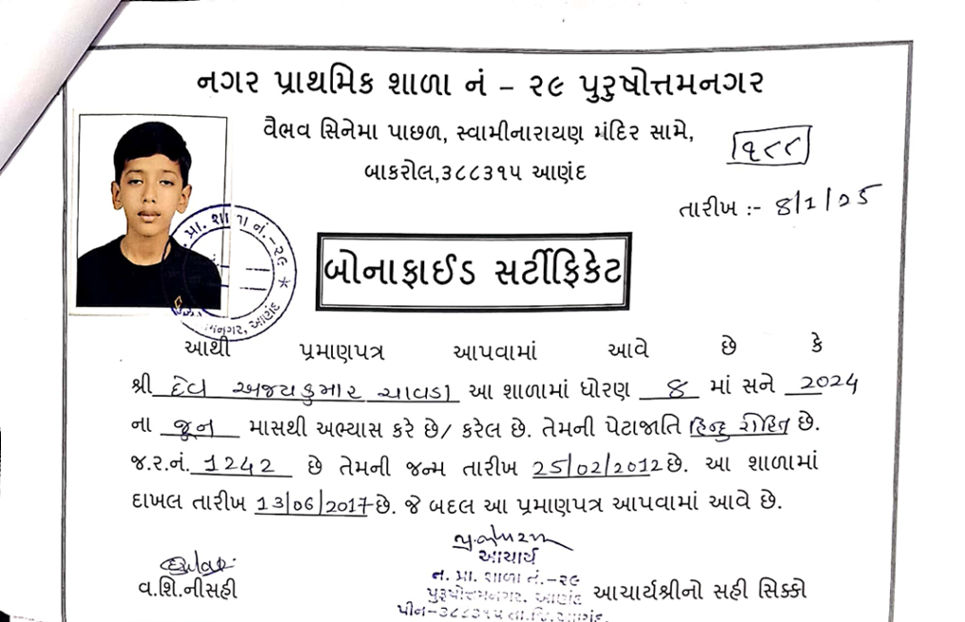 નગર પ્રાથમિક શાળા નં – ૨૯ પુરુષોત્તમનગર
વૈભવ સિનેમા પાછળ, સ્વામીનારાયણ મંદિર સામે,
૧૮૮
બાકરોલ,૩૮૮૩૧૫ આણંદ
તારીખ :- 8/1/25
પ્રા. શાળા નં.-૨૯ *
મનગર, આણંદ
બોનાફાઈડ સર્ટીફિકેટ
આથી પ્રમાણપત્ર આપવામાં આવે છે કે
શ્રી દેવ અજયકુમાર ચાવડા આ શાળામાં ધોરણ 8 માં સને 2024
ના જૂન માસથી અભ્યાસ કરે છે/ કરેલ છે. તેમની પેટાજાતિ હિન્દુ રોહિત છે.
જ.ર.નં. 1242 છે તેમની જન્મ તારીખ 25/02/2012 છે. આ શાળામાં
દાખલ તારીખ 13/06/2017 છે. જે બદલ આ પ્રમાણપત્ર આપવામાં આવે છે.
આચાર્ય
ન. પ્રા. શાળા નં.-૨૯
વ.શિ.નીસહી
પુરૂષોત્તમનગર, આણંદ
આચાર્યશ્રીનો સહી સિક્કો
પીન-૩૮૮૩૧૫ તા.જિ.આણંદ.